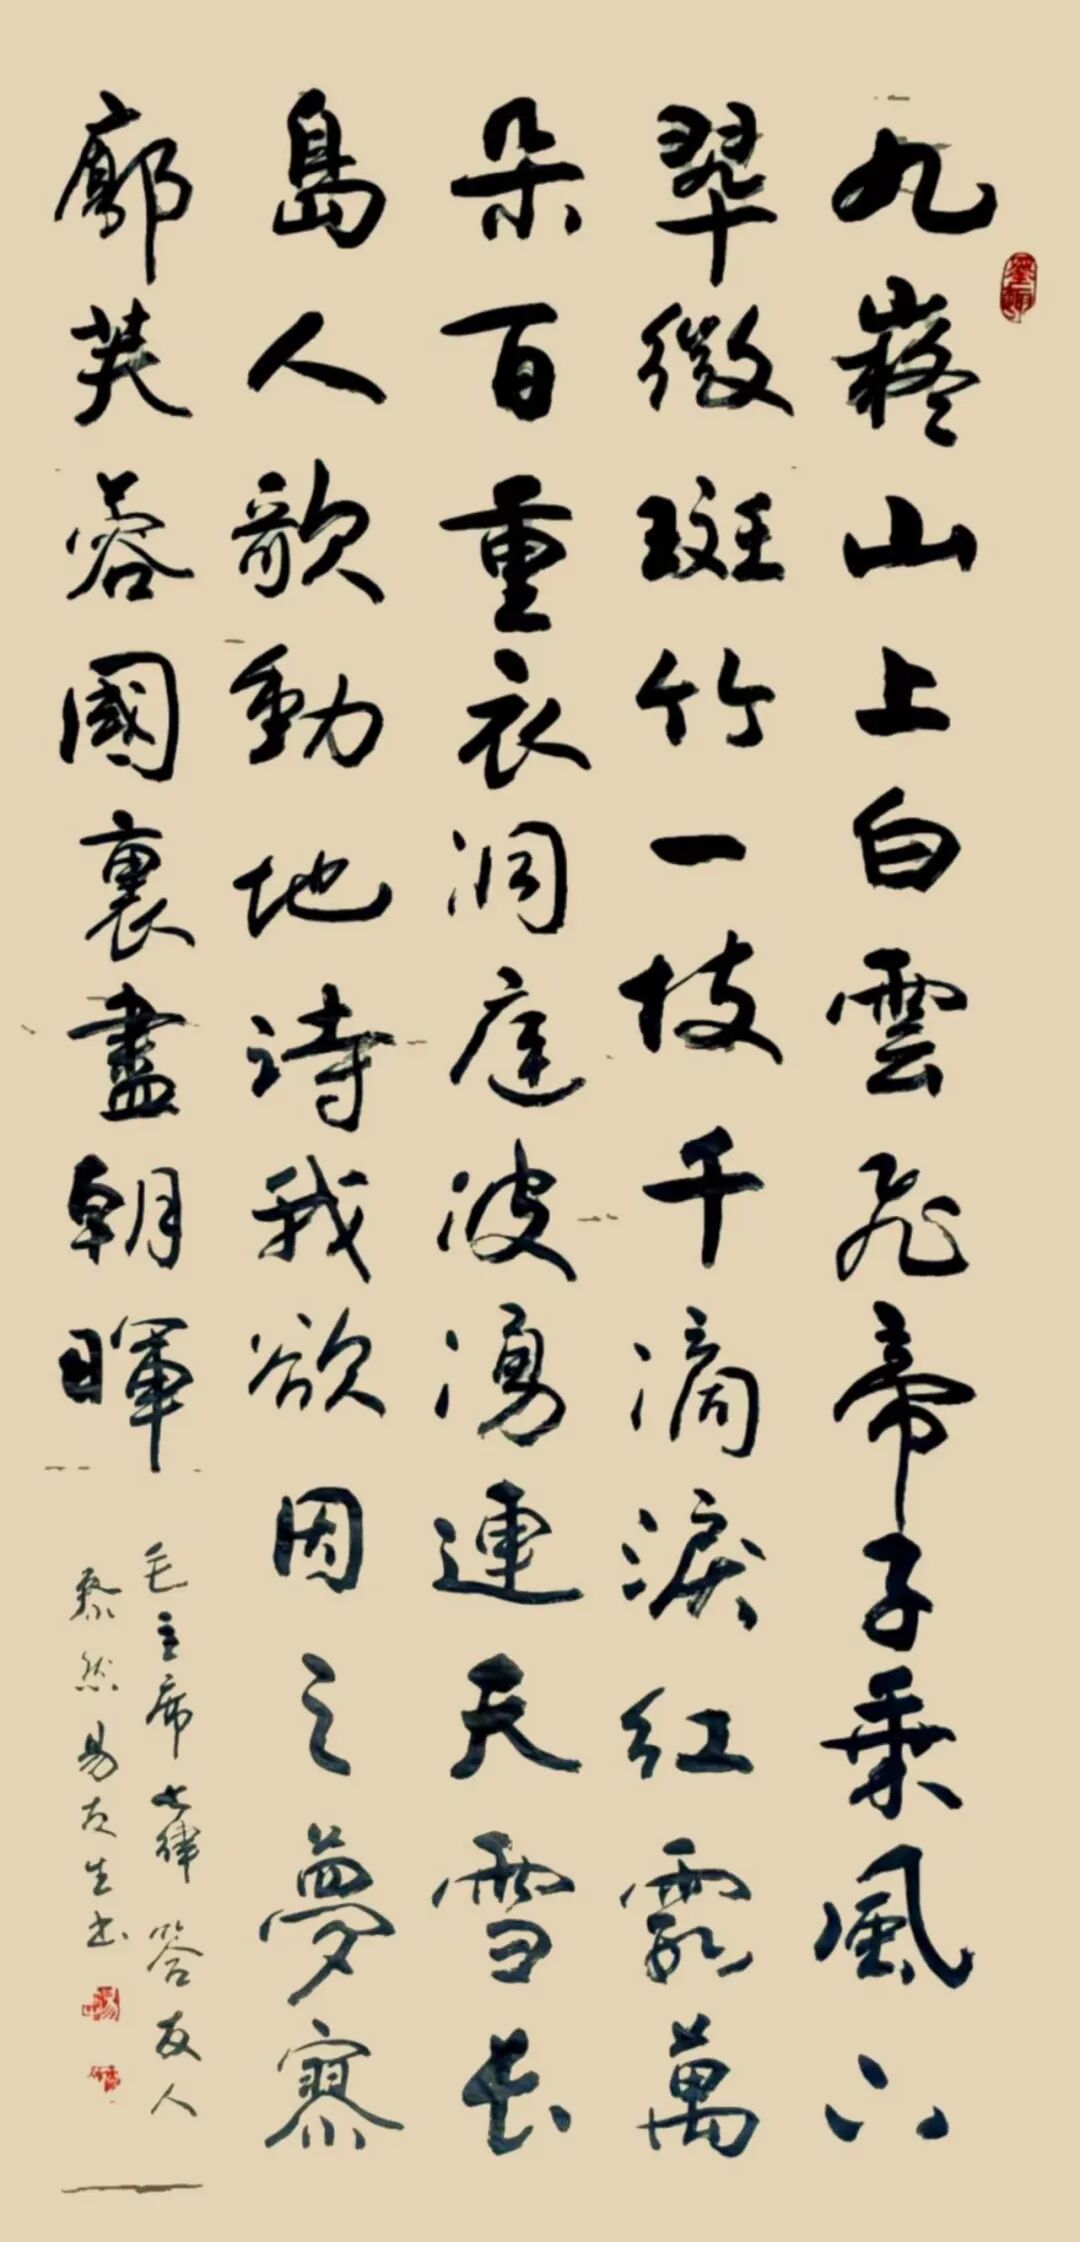 九嶷山上白雲飛帝子乘風下
翠微斑竹一枝千滴淚紅霞萬
朵百重衣洞庭波湧連天雪長
島人歌動地詩我欲因之夢寥
廓芙蓉國裏盡朝暉
毛主席七律答友人
泰然易友生书